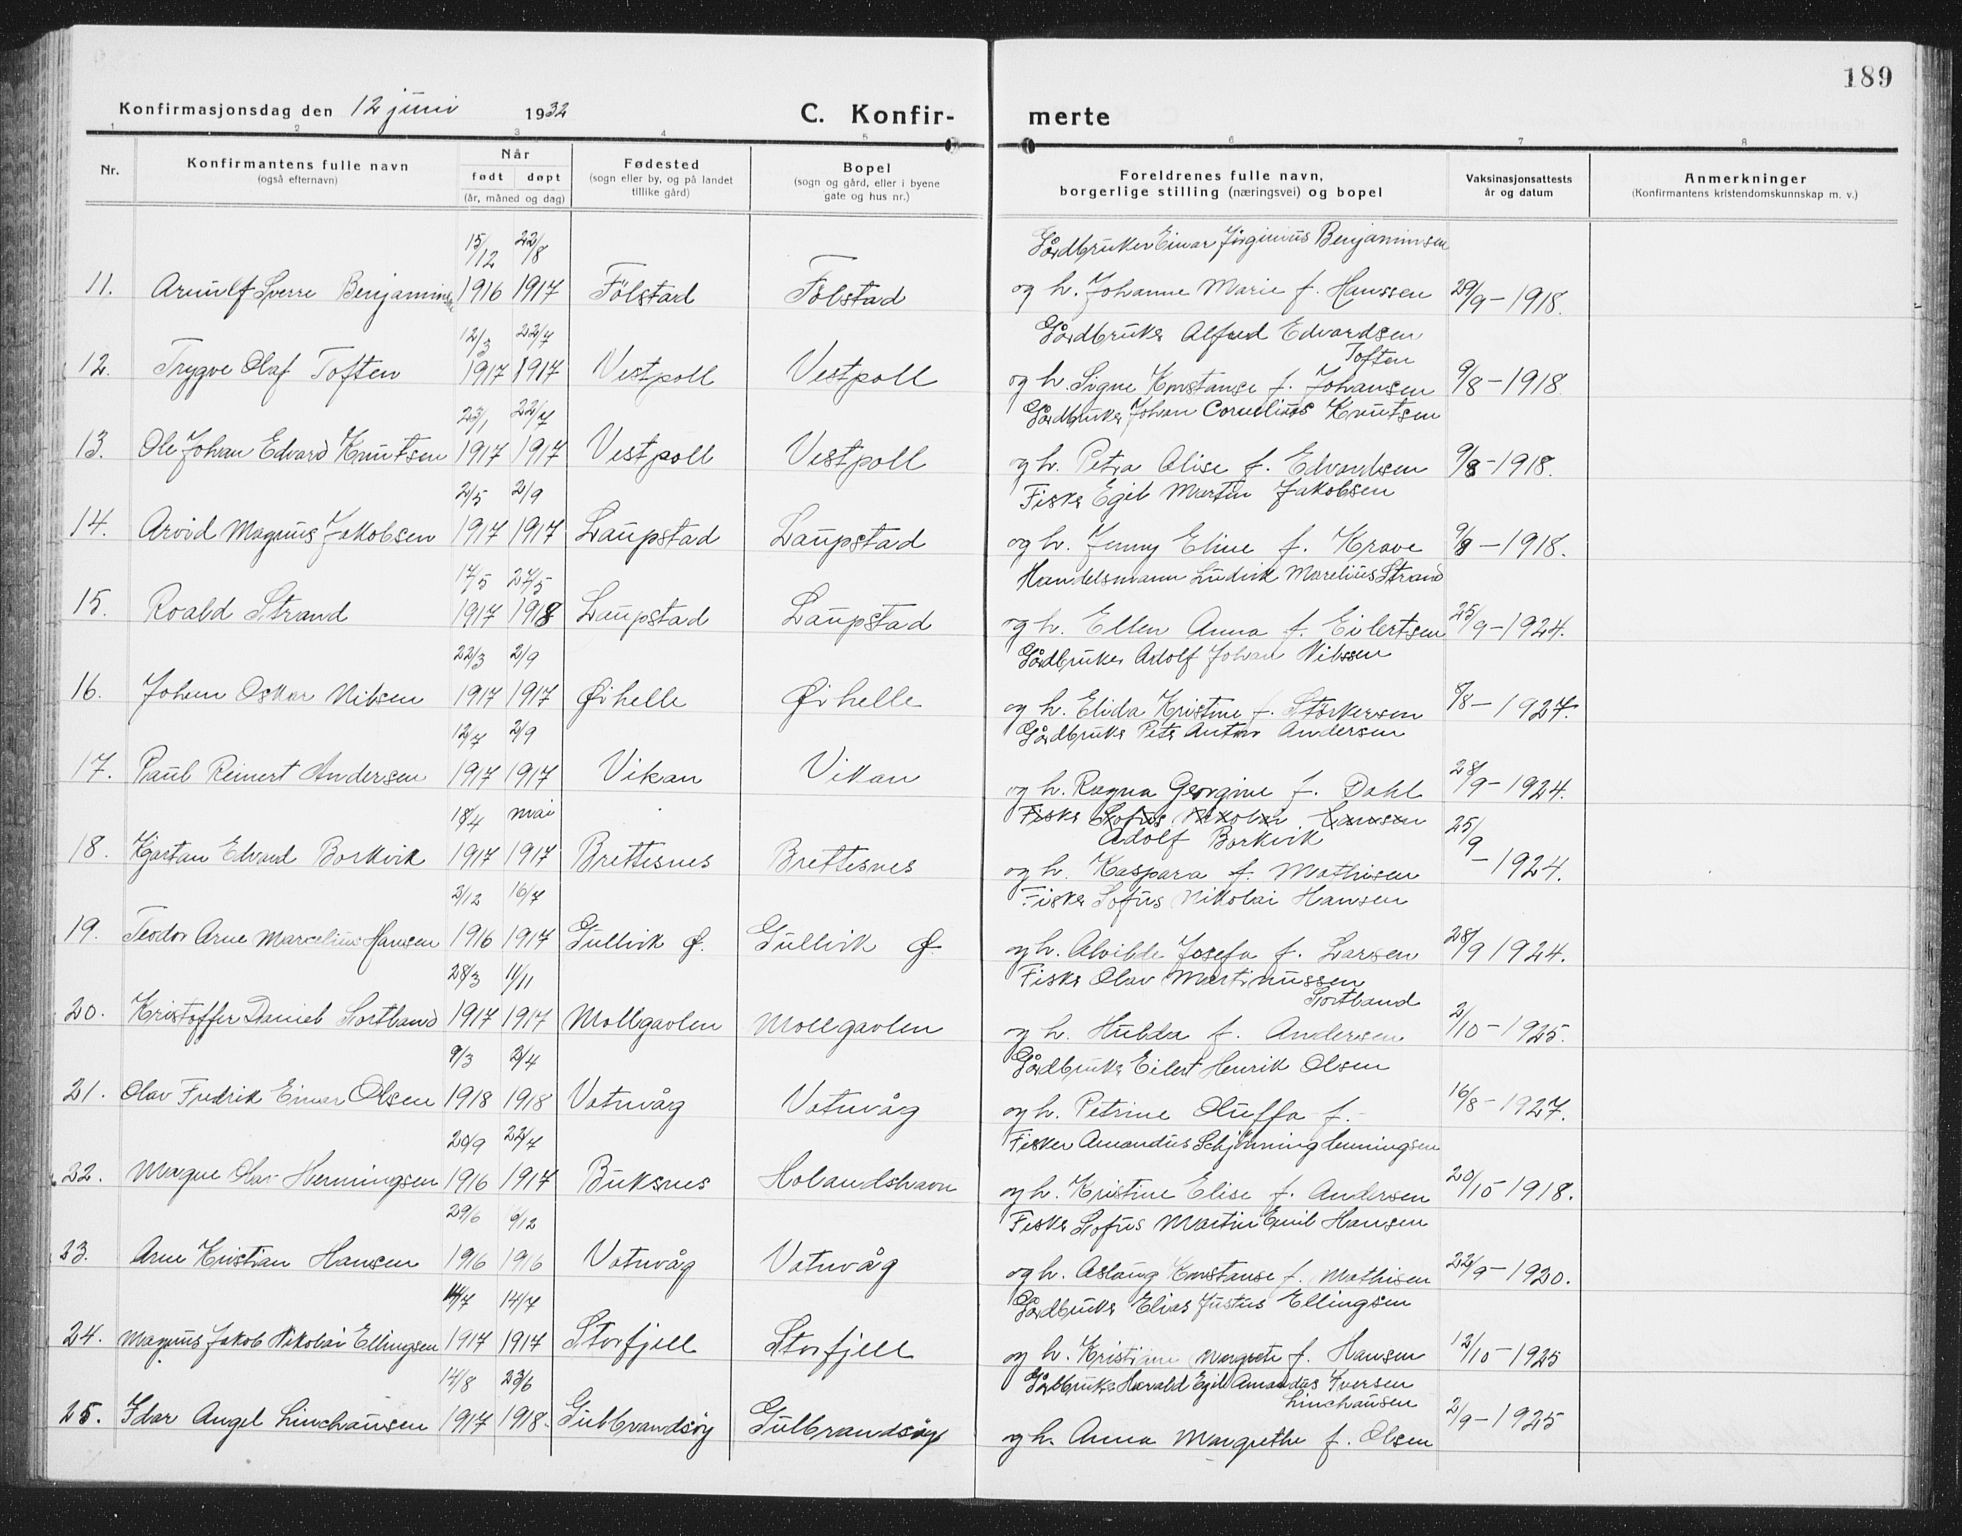 189
Konfirmasjonsdag den 12 juni 1932 C. Konfir- merte
1 2 3 4 5 6 7 8
Nr. Konfirmantens fulle navn (også efternavn) Når født døpt (år, måned og dag) Fødested (sogn eller by, og på landet tillike gård) Bopel (sogn og gård, eller i byene gate og hus nr.) Foreldrenes fulle navn, borgerlige stilling (næringsvei) og bopel Vaksinasjonsattests år og datum Anmerkninger (Konfirmantens kristendomskunnskap m. v.)
15/12 22/8 Gårdbruker Einar Jørginius Benjaminsen
11. Arnulf Sverre Benjaminsen 1916 1917 Fölstad Fölstad og h. Johanne Marie f. Hanssen 29/9-1918.
12/3 22/7 Gårdbruker Alfred Edvardsen Toften
12. Trygve Olaf Toften 1917 1917 Vestpoll Vestpoll og h. Signe Konstanse f. Johansen 9/8-1918
23/1 22/7 Gårdbruker Johan Cornelius Knutsen
13. Ole Johan Edvard Knutsen 1917 1917 Vestpoll Vestpoll og h. Petra Alise f. Edvardsen 9/8-1918.
2/5 2/9 Fisker Egil Martin Jakobsen
14. Arvid Magnus Jakobsen 1917 1917 Laupstad Laupstad og h. Jenny Eline f. Krave 9/8-1918.
17/5 27/5 Handelsmann Ludvik Marelius Strand
15. Roald Strand 1917 1918 Laupstad Laupstad og h. Ellen Anna f. Eilertsen 25/9-1924.
22/3 2/9 Gårdbruker Adolf Johan Nilssen
16. Johan Oskar Nilsen 1917 1917 Øihelle Øihelle og h. Elida Kristine f. Störkersen 8/8-1927.
12/7 2/9 Gårdbruker Peter Anton Andersen
17. Paul Reinert Andersen 1917 1917 Vikan Vikan og h. Ragna Georgine f. Dahl 28/9-1924.
18/4 mai Fisker Sofus Nikolai Hansen
Adolf Borkvik
18. Kjartan Edvard Borkvik 1917 1917 Brettesnes Brettesnes og h. Kaspara f. Mathisen 25/9-1924.
2/12 16/7 Fisker Sofus Nikolai Hansen
19. Teodor Arne Marcelius Hansen 1916 1917 Gullvik Ø. Gullvik Ø. og h. Alvilde Josefa f. Larsen 28/9 1924.
28/3 11/11 Fisker Olav Martinussen Sortland
20. Kristoffer Daniel Sortland 1917 1917 Mollgavlen Mollgavlen og h. Hulda f. Andersen 2/10-1925.
9/3 2/4 Gårdbruker Eilert Henrik Olsen
21. Olav Fredrik Einar Olsen 1918 1918 Vatnvåg Vatnvåg og h. Petrine Oluffa f. 16/8-1927.
20/9 22/7 Fisker Amandus Schjønning Henningsen
22. Magne Olav Henningsen 1916 1917 Buksnes Holandshavn og h. Kristine Elise f. Andersen 20/10-1918.
29/6 6/12 Fisker Sofus Martin Emil Hansen
23. Arne Kristian Hansen 1916 1916 Vatnvåg Vatnvåg og h. Aslaug Konstanse f. Mathisen 22/9-1920.
14/7 Gårdbruker Elias Justus Ellingsen
24. Magnus Jakob Nikolai Ellingsen 1917 1917 Storfjell Storfjell og h. Kristiane Margrete f. Hansen 12/10-1925
14/8 23/6 Gårdbruker Harald Egil Amandus Iversen Linchausen
25. Idar Angel Linchausen 1917 1918. Gulbrandsøy Gulbrandsøy og h. Anna Margrethe f. Olsen 2/9-1925